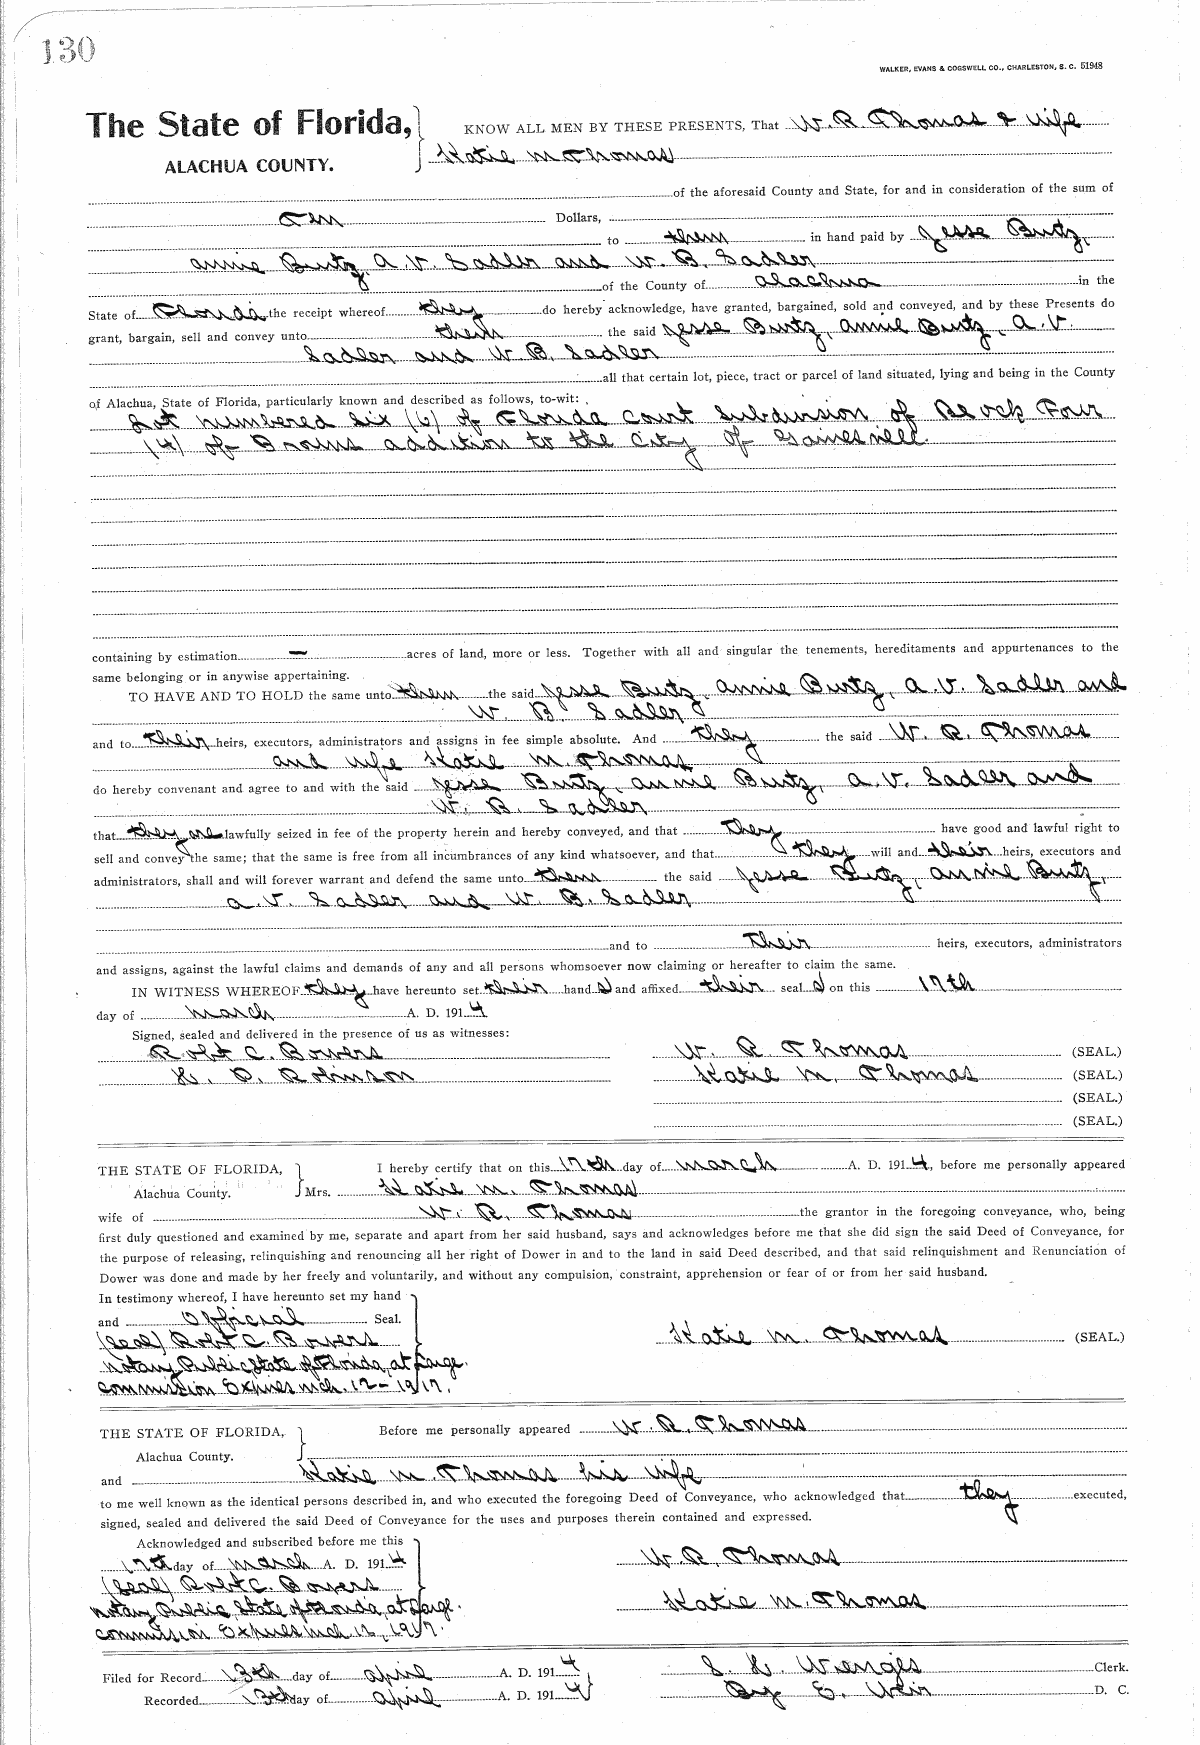 130
WALKER, EVANS & COGSWELL CO., CHARLESTON, S. C. 51948
The State of Florida, KNOW ALL MEN BY THESE PRESENTS, That W. R. Thomas & wife
ALACHUA COUNTY. Katie M Thomas
of the aforesaid County and State, for and in consideration of the sum of
Ten Dollars,
to them in hand paid by Jesse Burtz,
Annie Burtz, A V. Sadler and W. B. Sadler
of the County of Alachua in the
State of Florida the receipt whereof they do hereby acknowledge, have granted, bargained, sold and conveyed, and by these Presents do
grant, bargain, sell and convey unto them the said Jesse Burtz, Annie Burtz, A. V.
Sadler and W B. Sadler
all that certain lot, piece, tract or parcel of land situated, lying and being in the County
of Alachua, State of Florida, particularly known and described as follows, to-wit:
Lot numbered six (6) of Florida Court Subdivision of Block Four
(4) of Browns addition to the City of Gainesville.
containing by estimation — acres of land, more or less. Together with all and singular the tenements, hereditaments and appurtenances to the
same belonging or in anywise appertaining.
TO HAVE AND TO HOLD the same unto them the said Jesse Burtz, Annie Burtz, A. V. Sadler and
W. B. Sadler
and to their heirs, executors, administrators and assigns in fee simple absolute. And they the said W. R. Thomas
and wife Katie M. Thomas
do hereby convenant and agree to and with the said Jesse Burtz, Annie Burtz, A. V. Sadler and
W. B. Sadler
that they are lawfully seized in fee of the property herein and hereby conveyed, and that they have good and lawful right to
sell and convey the same; that the same is free from all incumbrances of any kind whatsoever, and that they will and their heirs, executors and
administrators, shall and will forever warrant and defend the same unto them the said Jesse Burtz, Annie Burtz,
A. V. Sadler and W. B. Sadler
and to their heirs, executors, administrators
and assigns, against the lawful claims and demands of any and all persons whomsoever now claiming or hereafter to claim the same.
IN WITNESS WHEREOF they have hereunto set their hand s and affixed their seal s on this 17th
day of March A. D. 1914
Signed, sealed and delivered in the presence of us as witnesses:
Robt C. Bowers W. R Thomas (SEAL.)
K. D. Robinson Katie M. Thomas (SEAL.)
(SEAL.)
(SEAL.)
THE STATE OF FLORIDA, I hereby certify that on this 17th day of March A. D. 1914, before me personally appeared
Alachua County. Mrs. Katie M. Thomas
wife of W. R. Thomas the grantor in the foregoing conveyance, who, being
first duly questioned and examined by me, separate and apart from her said husband, says and acknowledges before me that she did sign the said Deed of Conveyance, for
the purpose of releasing, relinquishing and renouncing all her right of Dower in and to the land in said Deed described, and that said relinquishment and Renunciation of
Dower was done and made by her freely and voluntarily, and without any compulsion, constraint, apprehension or fear of or from her said husband.
In testimony whereof, I have hereunto set my hand
and Official Seal.
(Seal) Robt C. Bowers Katie M. Thomas (SEAL.)
Notary Public State of Florida, at Large.
Commission Expires Mch. 12 - 1917.
THE STATE OF FLORIDA, Before me personally appeared W. R. Thomas
Alachua County.
and Katie M. Thomas his wife
to me well known as the identical persons described in, and who executed the foregoing Deed of Conveyance, who acknowledged that they executed,
signed, sealed and delivered the said Deed of Conveyance for the uses and purposes therein contained and expressed.
Acknowledged and subscribed before me this
17th day of March A. D. 1914 W R. Thomas
(Seal) Robt C. Bowers
Notary Public, State of Florida, at Large. Katie M. Thomas
Commission Expires Mch 12, 1917.
Filed for Record 13th day of April A. D. 1914 S. H. Wienges Clerk.
Recorded 13th day of April A. D. 1914 By E. Weir D. C.